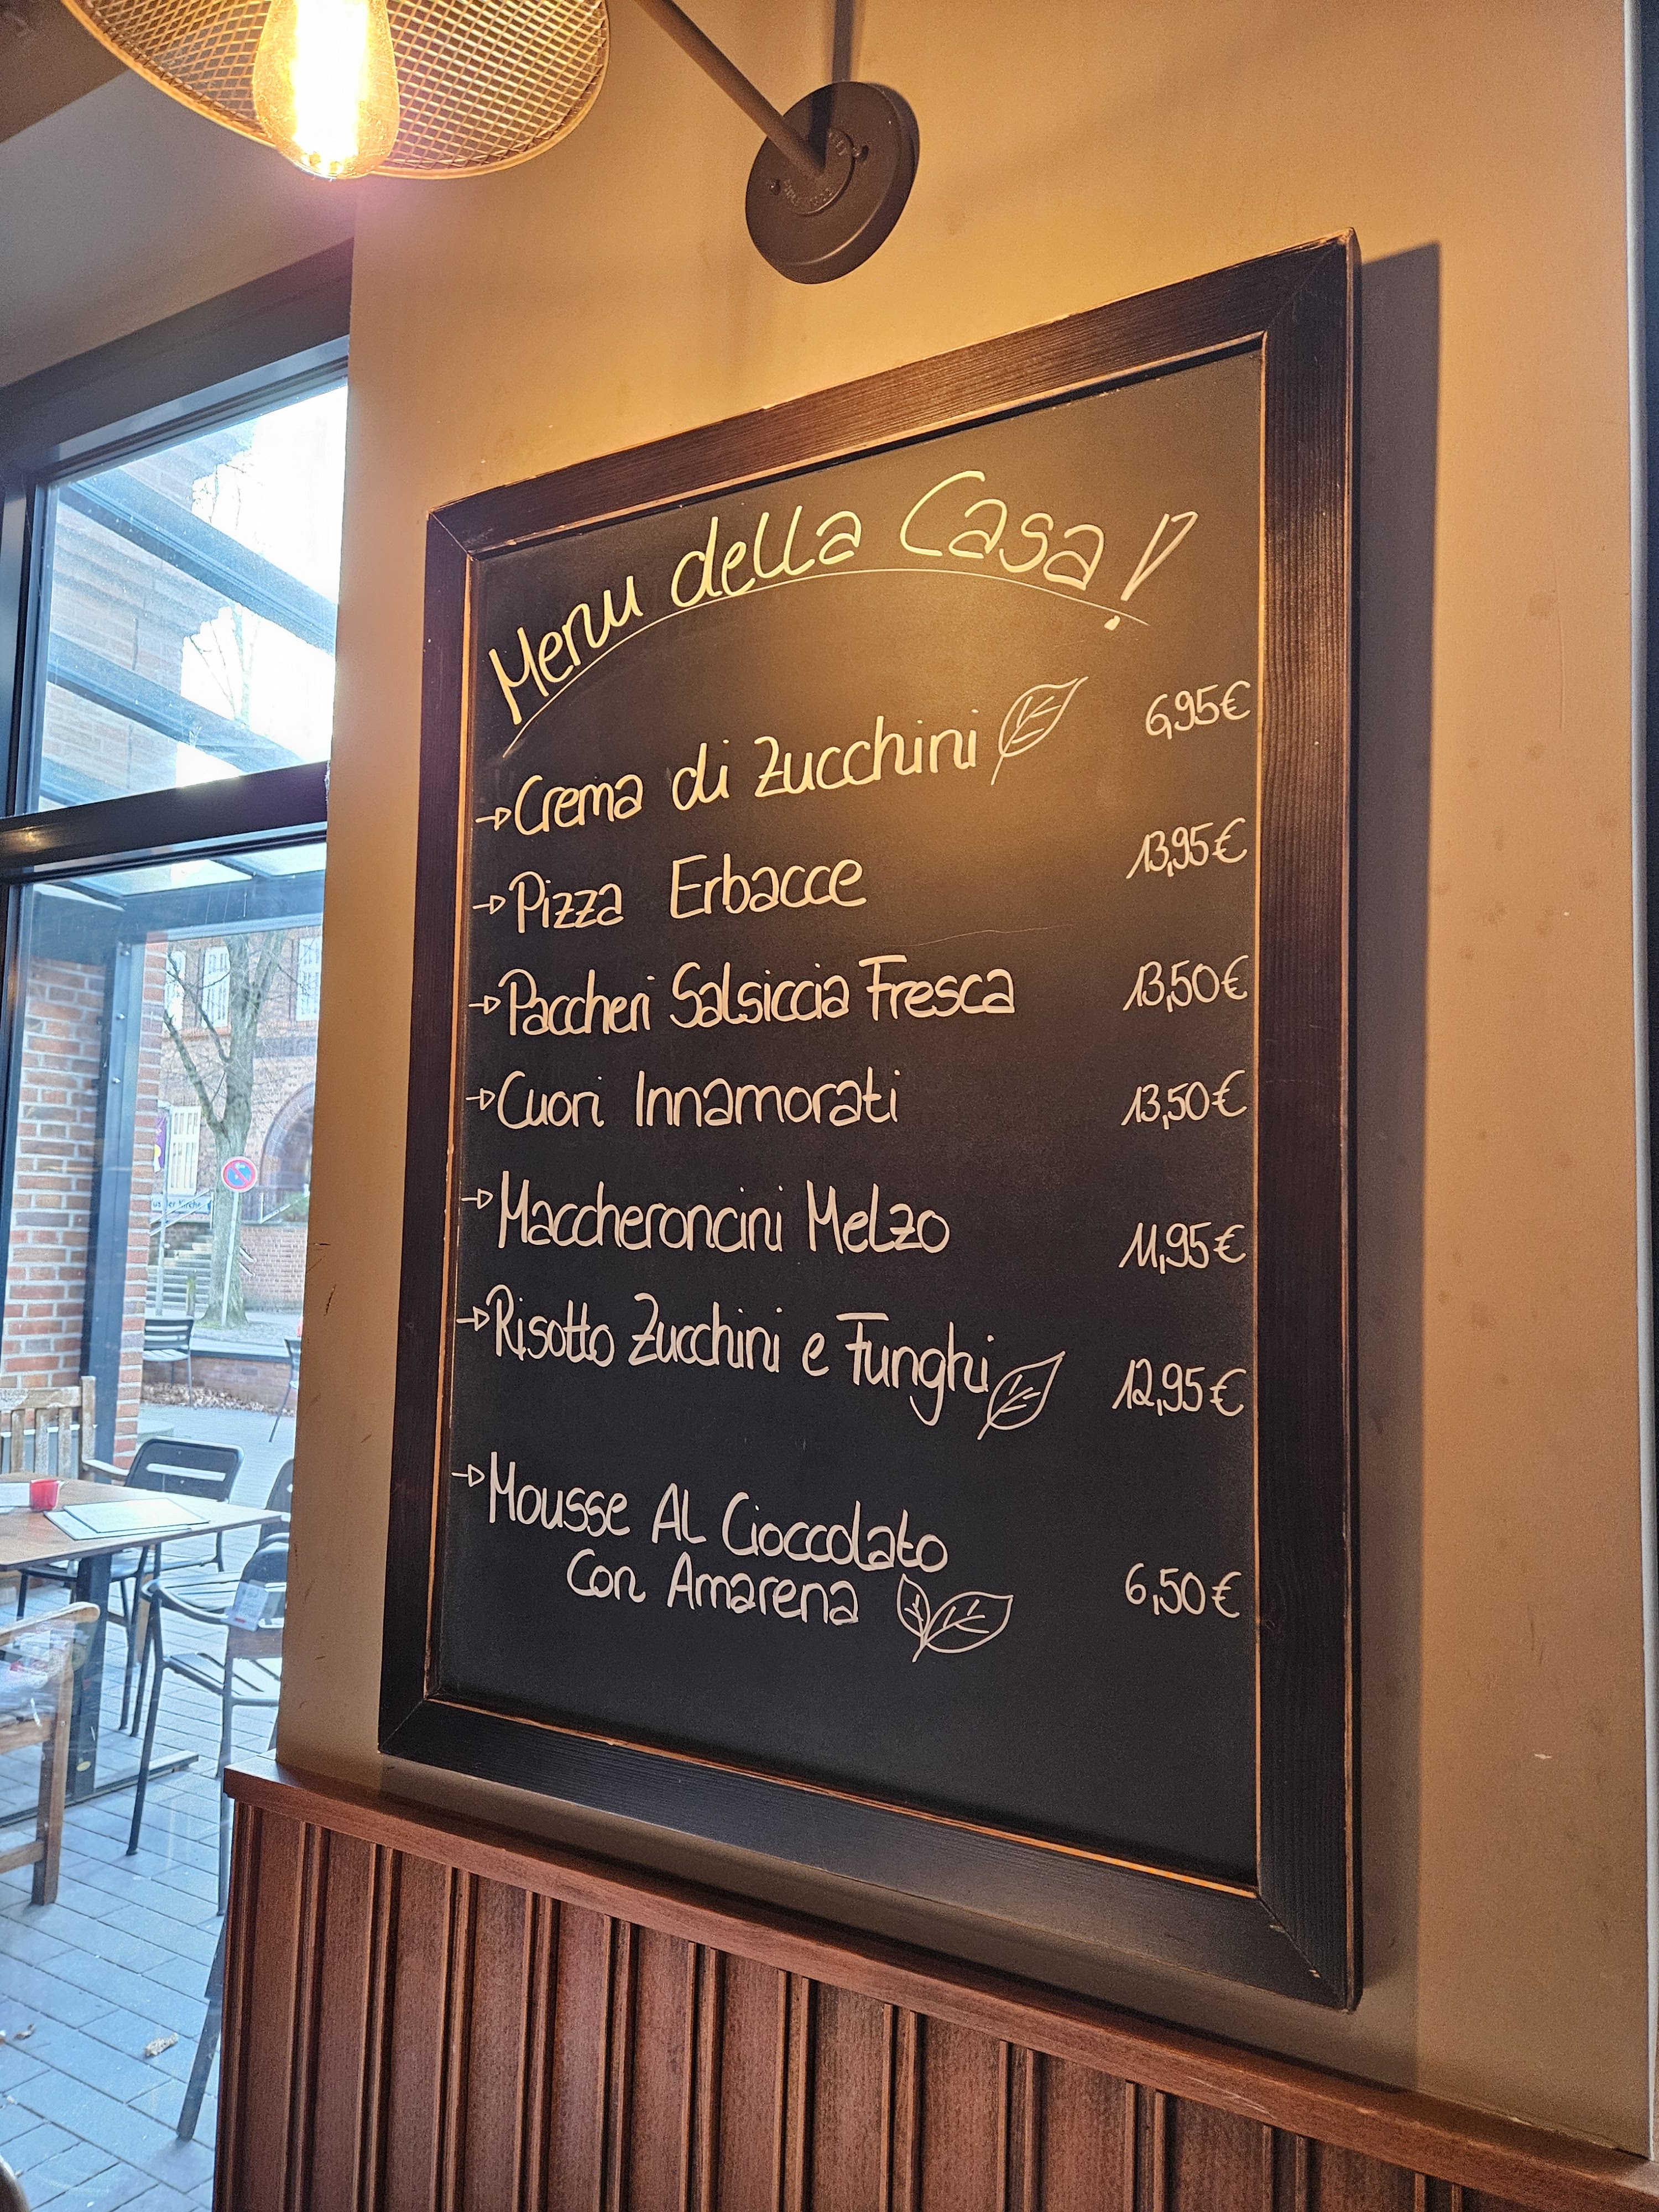 Menu della Casa!
→Crema di Zucchini 6,95€
→Pizza Erbacce 13,95€
→Paccheri Salsiccia Fresca 13,50€
→Cuori Innamorati 13,50€
→Maccheroncini Melzo 11,95€
→Risotto Zucchini e Funghi 12,95€
→Mousse AL Cioccolato
Con Amarena 6,50€